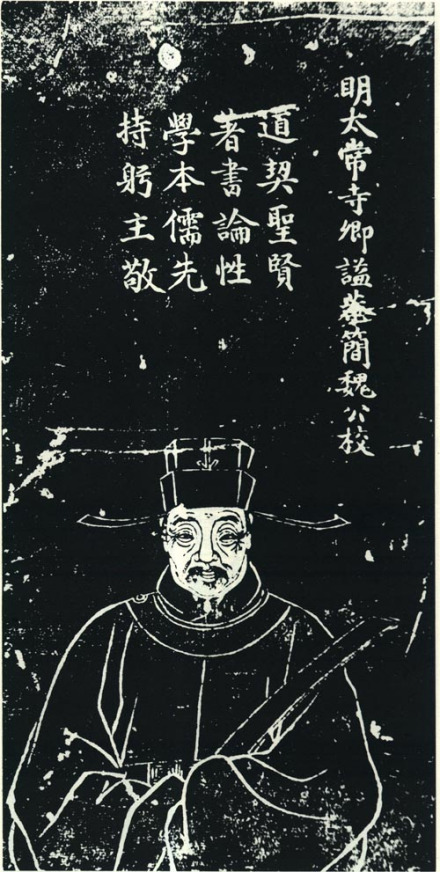 明太常寺卿謚恭簡魏公校
道契聖賢
著書論性
學本儒先
持躬主敬